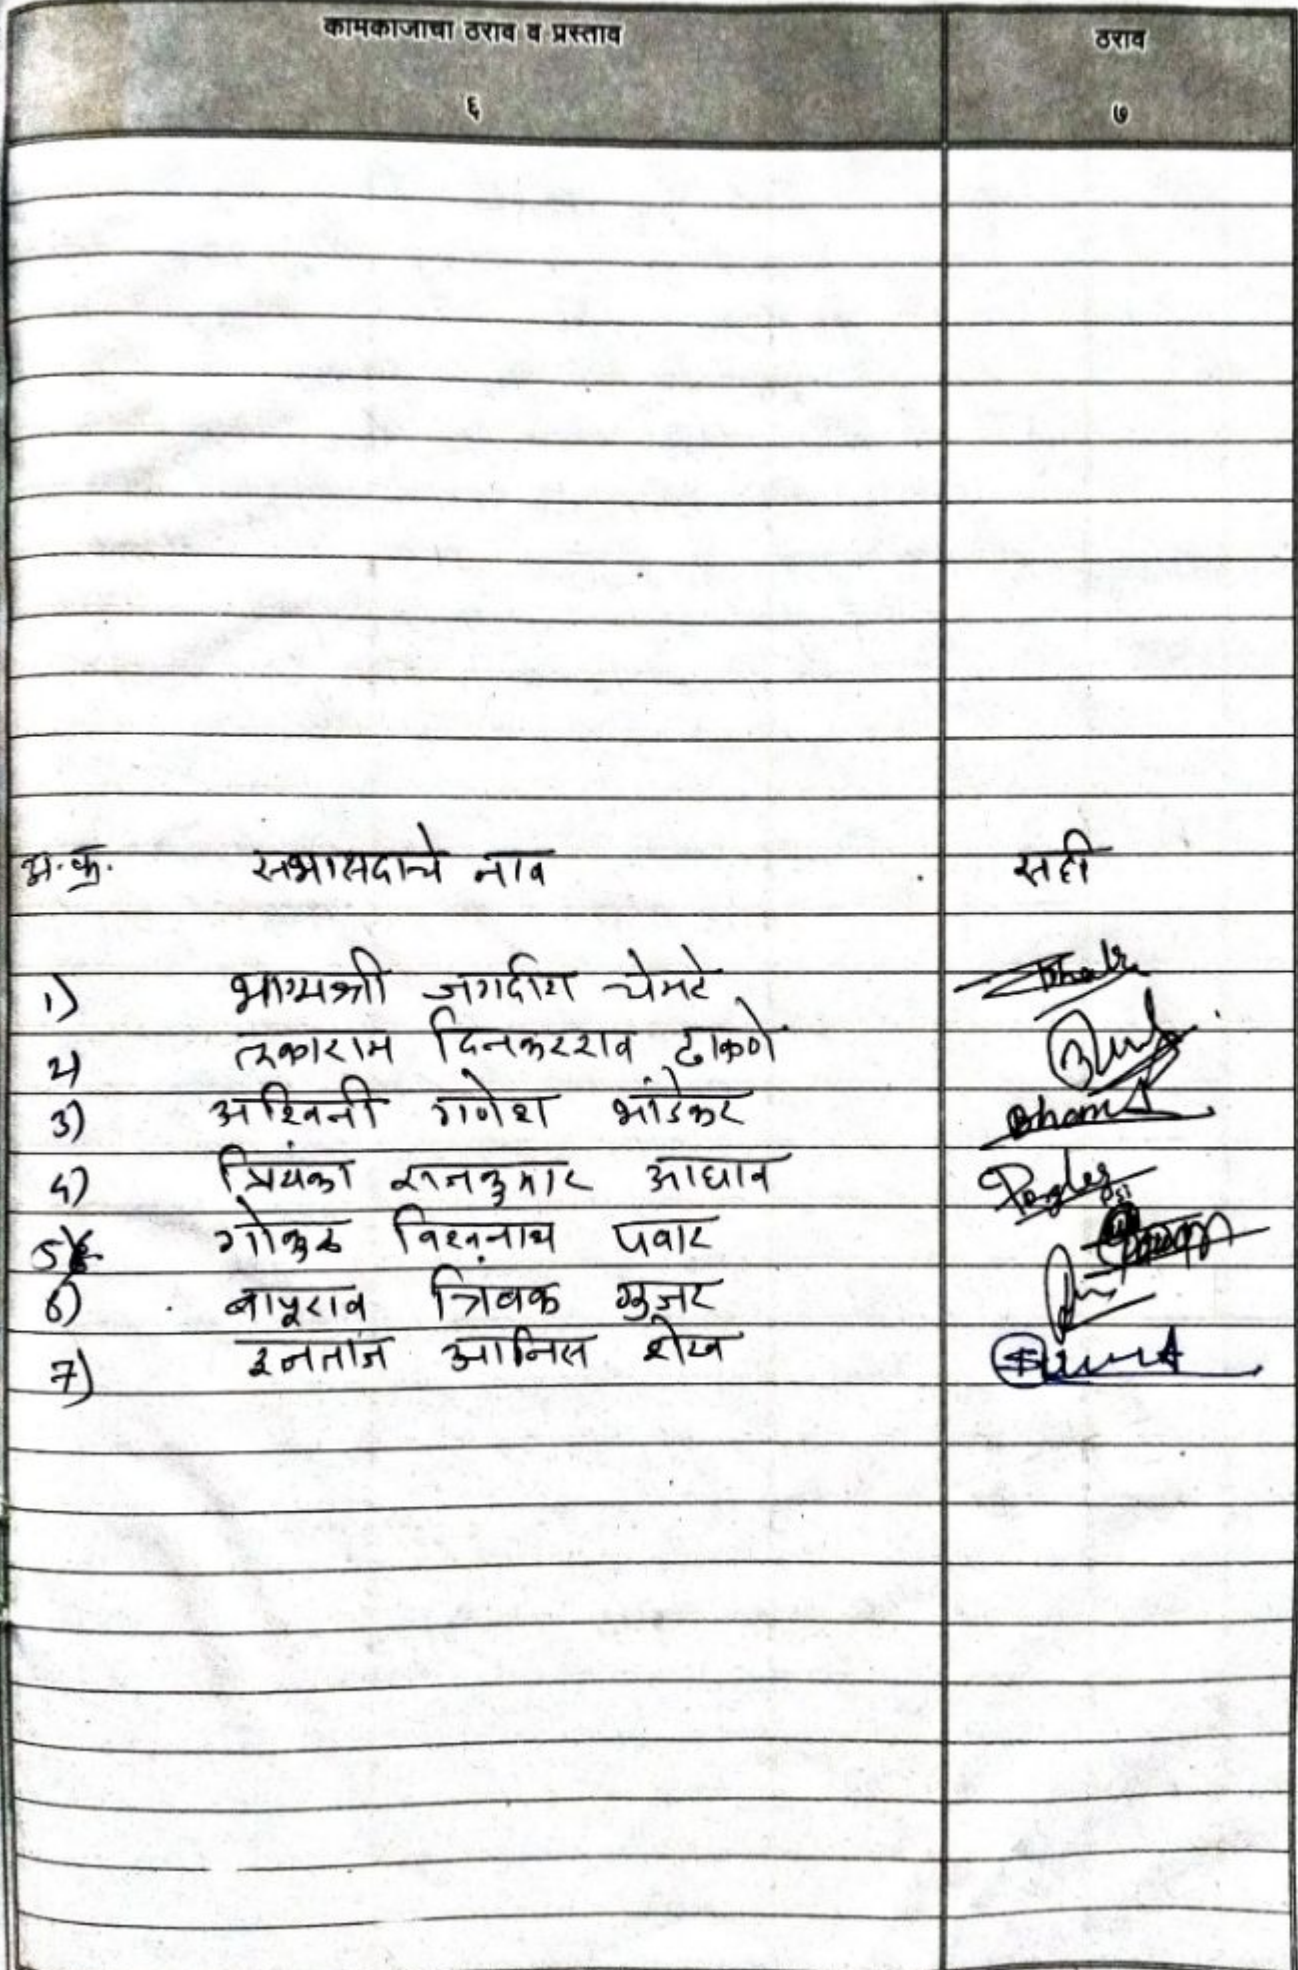 कामकाजाचा ठराव व प्रस्ताव ठराव
६ ७
अ.क्र. सभासदाचे नाव सही
1) भाग्यश्री जगदीश चेमटे
2) तुकाराम दिनकरराव ढाकणे
3) अश्विनी गणेश भांडेकर
4) प्रियंका राजकुमार आघाव
5) गोकुळ विश्वनाथ पवार
6) बापुराव त्रिंबक गुजर
7) आनिस शेख